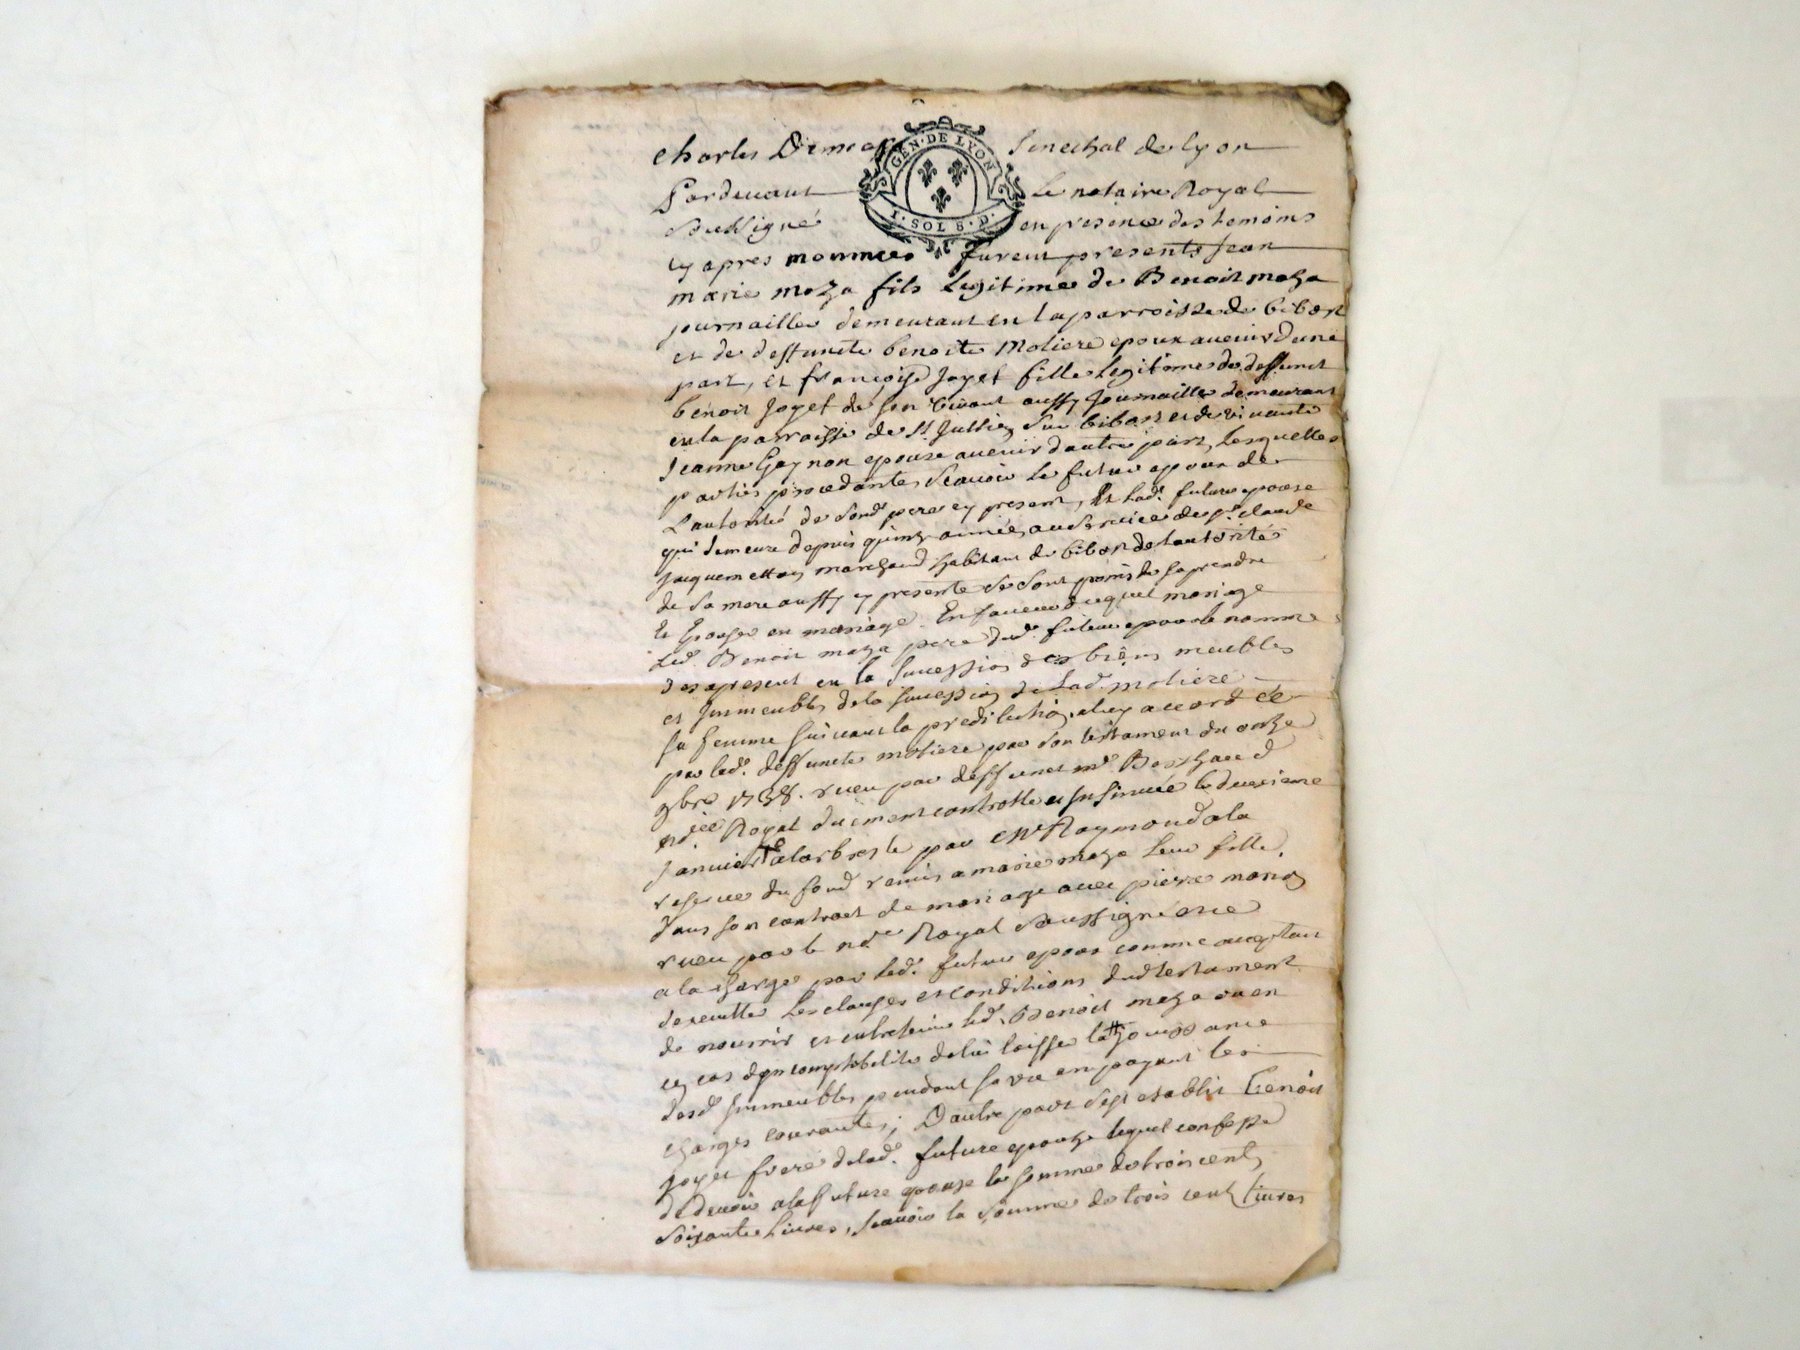 Charles Demeaſ Senechal de Lyon
GEN · DE LYON
Pardevant le notaire Royal
I · SOL 8 · D ·
Soussigné en presence des temoins
cy apres nommees furent presents Jean
marie maza fils legitime de Benoit maza
journaillier demeurant en la parroisse de bibost
et de deffuncte benoite Moliere epoux avenir dune
part, et françoise Joyet fille legitime de deffunct
benoit Joyet de son vivant aussy Journaillier demeurant
en la parroisse de St Jullien sur bibost et de vivante
Jeanne Gagnon epouse avenir dautre part, lesquelles
parties procedantes scavoir le futur epoux de
Lautorité de sond. pere cy present, et lad. future epouse
qui demeure depuis quinze année au service de sr. claude
Jacquemetton marchand habitant de bibost de lautorité
de sa mere aussy cy presente se sont promis de se prendre
et Epouser en mariage. En faveur duquel mariage
led. Benoit maza pere dud. futur epoux le nomme
des apresent en la succession des biens meubles
et Immeubles de la succession de lad. moliere
sa femme suivant la predilection aluy accordée
par lad. deffuncte moliere par son testament du onze
9bre 1738. receu par deffunct me. Berthaud
nore Royal duement controllé et Insinuée le deuxieme
Janvier alarbresle par me Raymond ala
reserve du fond remis a marie maza leur fille
dans son contract de mariage avec pierre
receu par le nore Royal soussigné et ce
a la charge par led. futur epoux comme
dexecutter les clauses et conditions dud testament
de nourrir et entretenir led. Benoit maza ou en
cas dincomptabilité delui laisser la jouissance
desd. Immeubles pendant sa vie en payant les
charges courantes; Dautre part sest etablit Benoit
Joyet frere de lad. future epouze lequel confesse
de devoir ala future epouze la somme de trois cents
soixante livres, scavoir la somme de trois cent livres